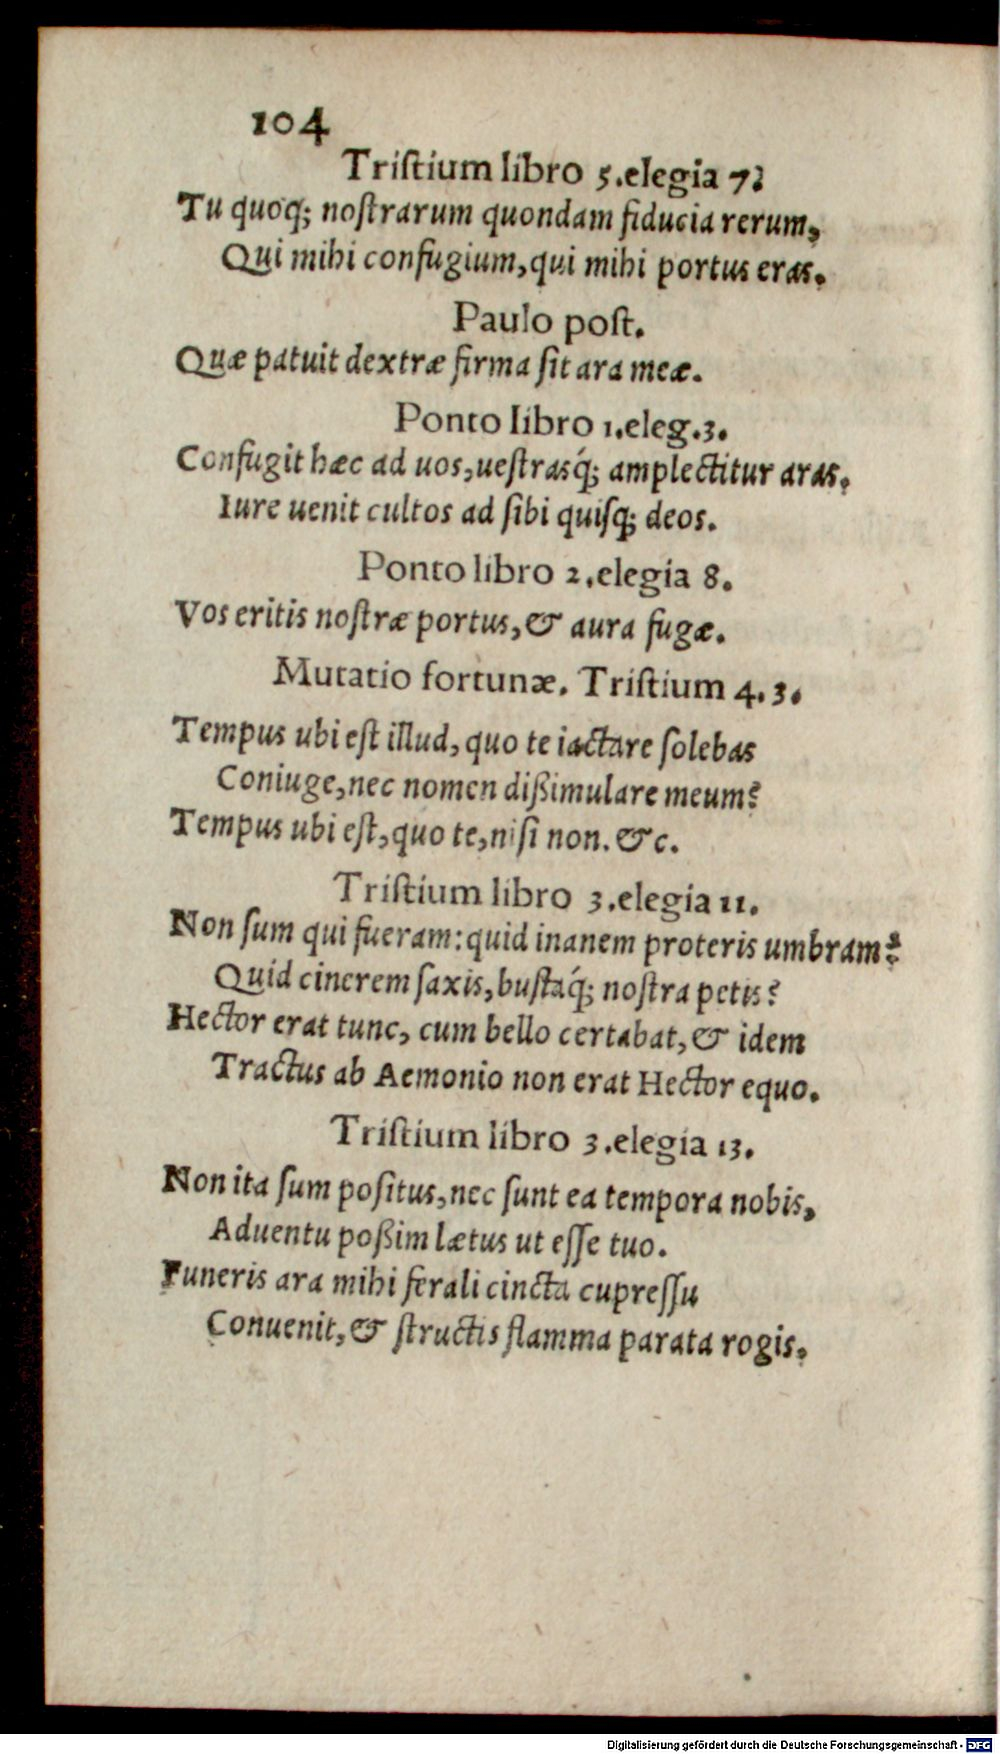 104
Triſtium libro 5.elegia 7?
Tu quoq; noſtrarum quondam fiducia rerum,
Qui mihi confugium,qui mihi portus eras.
Paulo poſt.
Quæ patuit dextræ firma ſit ara meæ.
Ponto libro 1.eleg.3.
Confugit hæc ad uos,ueſtrasq́; amplectitur aras.
Iure uenit cultos ad ſibi quiſq; deos.
Ponto libro 2.elegia 8.
Vos eritis noſtræ portus,& aura fugæ.
Mutatio fortunæ. Triſtium 4.3.
Tempus ubi eſt illud,quo te iactare ſolebas
Coniuge,nec nomen dißimulare meum?
Tempus ubi eſt,quo te,niſi non.&c.
Triſtium libro 3.elegia 11.
Non ſum qui fueram:quid inanem proteris umbram?
Quid cinerem ſaxis,buſtaq́; noſtra petis?
Hector erat tunc, cum bello certabat,& idem
Tractus ab Aemonio non erat Hector equo.
Triſtium libro 3.elegia 13.
Non ita ſum poſitus,nec ſunt ea tempora nobis,
Aduentu poßim lætus ut eſſe tuo.
Funeris ara mihi ferali cincta cupreſſu
Conuenit,& ſtructis flamma parata rogis.
Digitalisierung gefördert durch die Deutsche Forschungsgemeinschaft - DFG